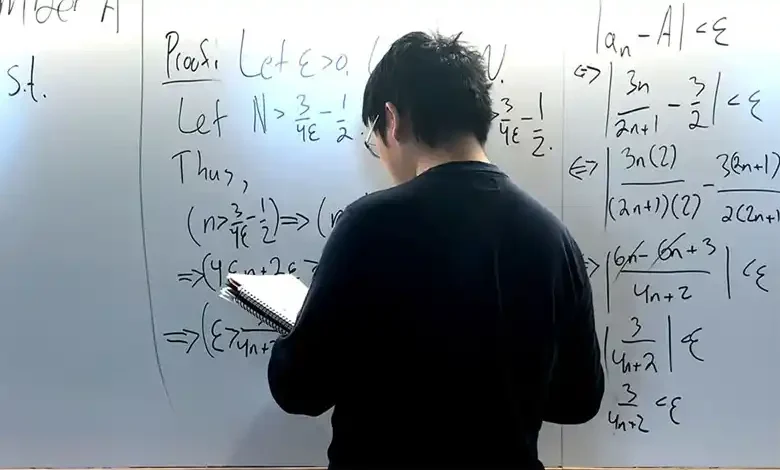 s.t.
Proof: Let ε>0.
Let N > 3/4ε - 1/2
3/4ε - 1/2.
Thus,
(n > 3/4ε - 1/2) ⇒ (
⇒ (4
n+2ε
⇒ (ε >
4n+2
|aₙ - A| < ε
⇔ |3n/2n+1 - 3/2| < ε
⇔ |3n(2)/(2n+1)(2) - 3(2n+1)/2(2n+1)
|6n - 6n + 3/4n+2| < ε
|3/4n+2| < ε
3/4n+2 < ε